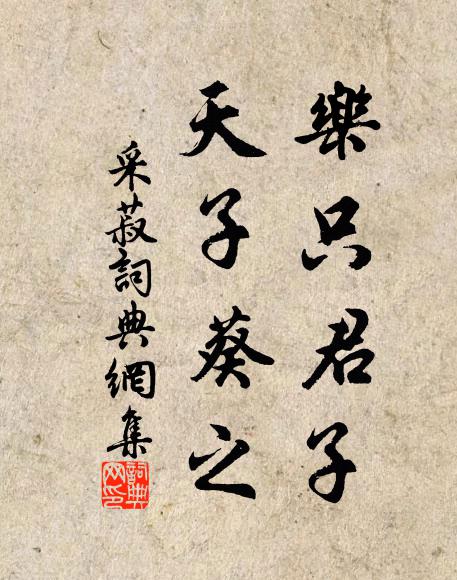 樂只君子
天子葵之
采菽詞典網集
詞典
网印